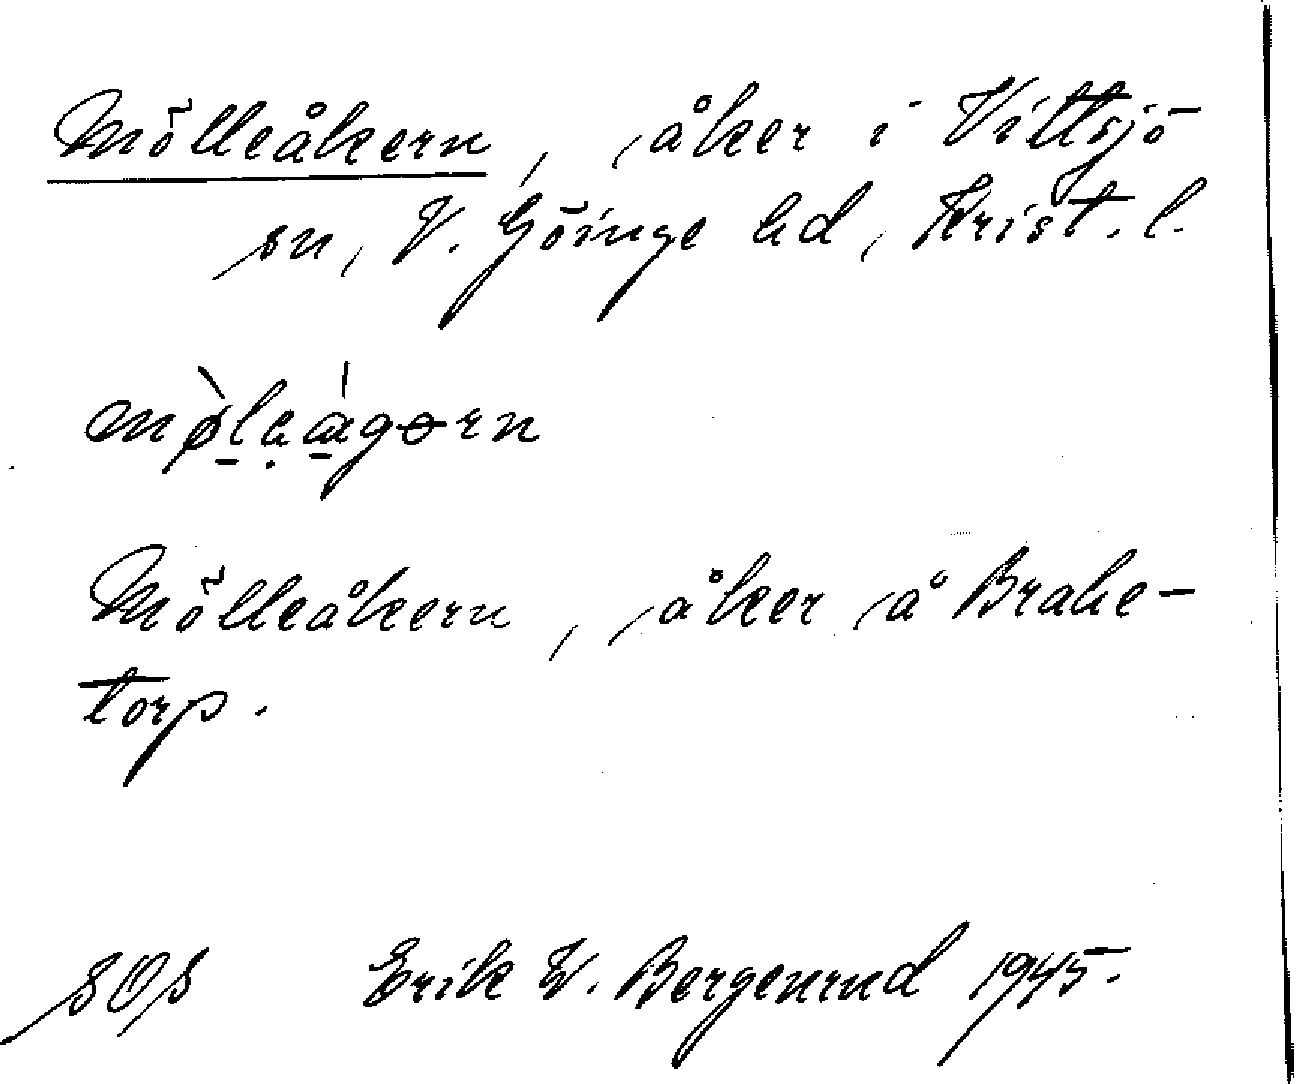 Mölleåkern, åker i Vittsjö
sn, V. Göinge hd, Krist. l.
Mölleåkern, åker å Brahe-
torp.
SOS Erik W. Bergenrud 1945.